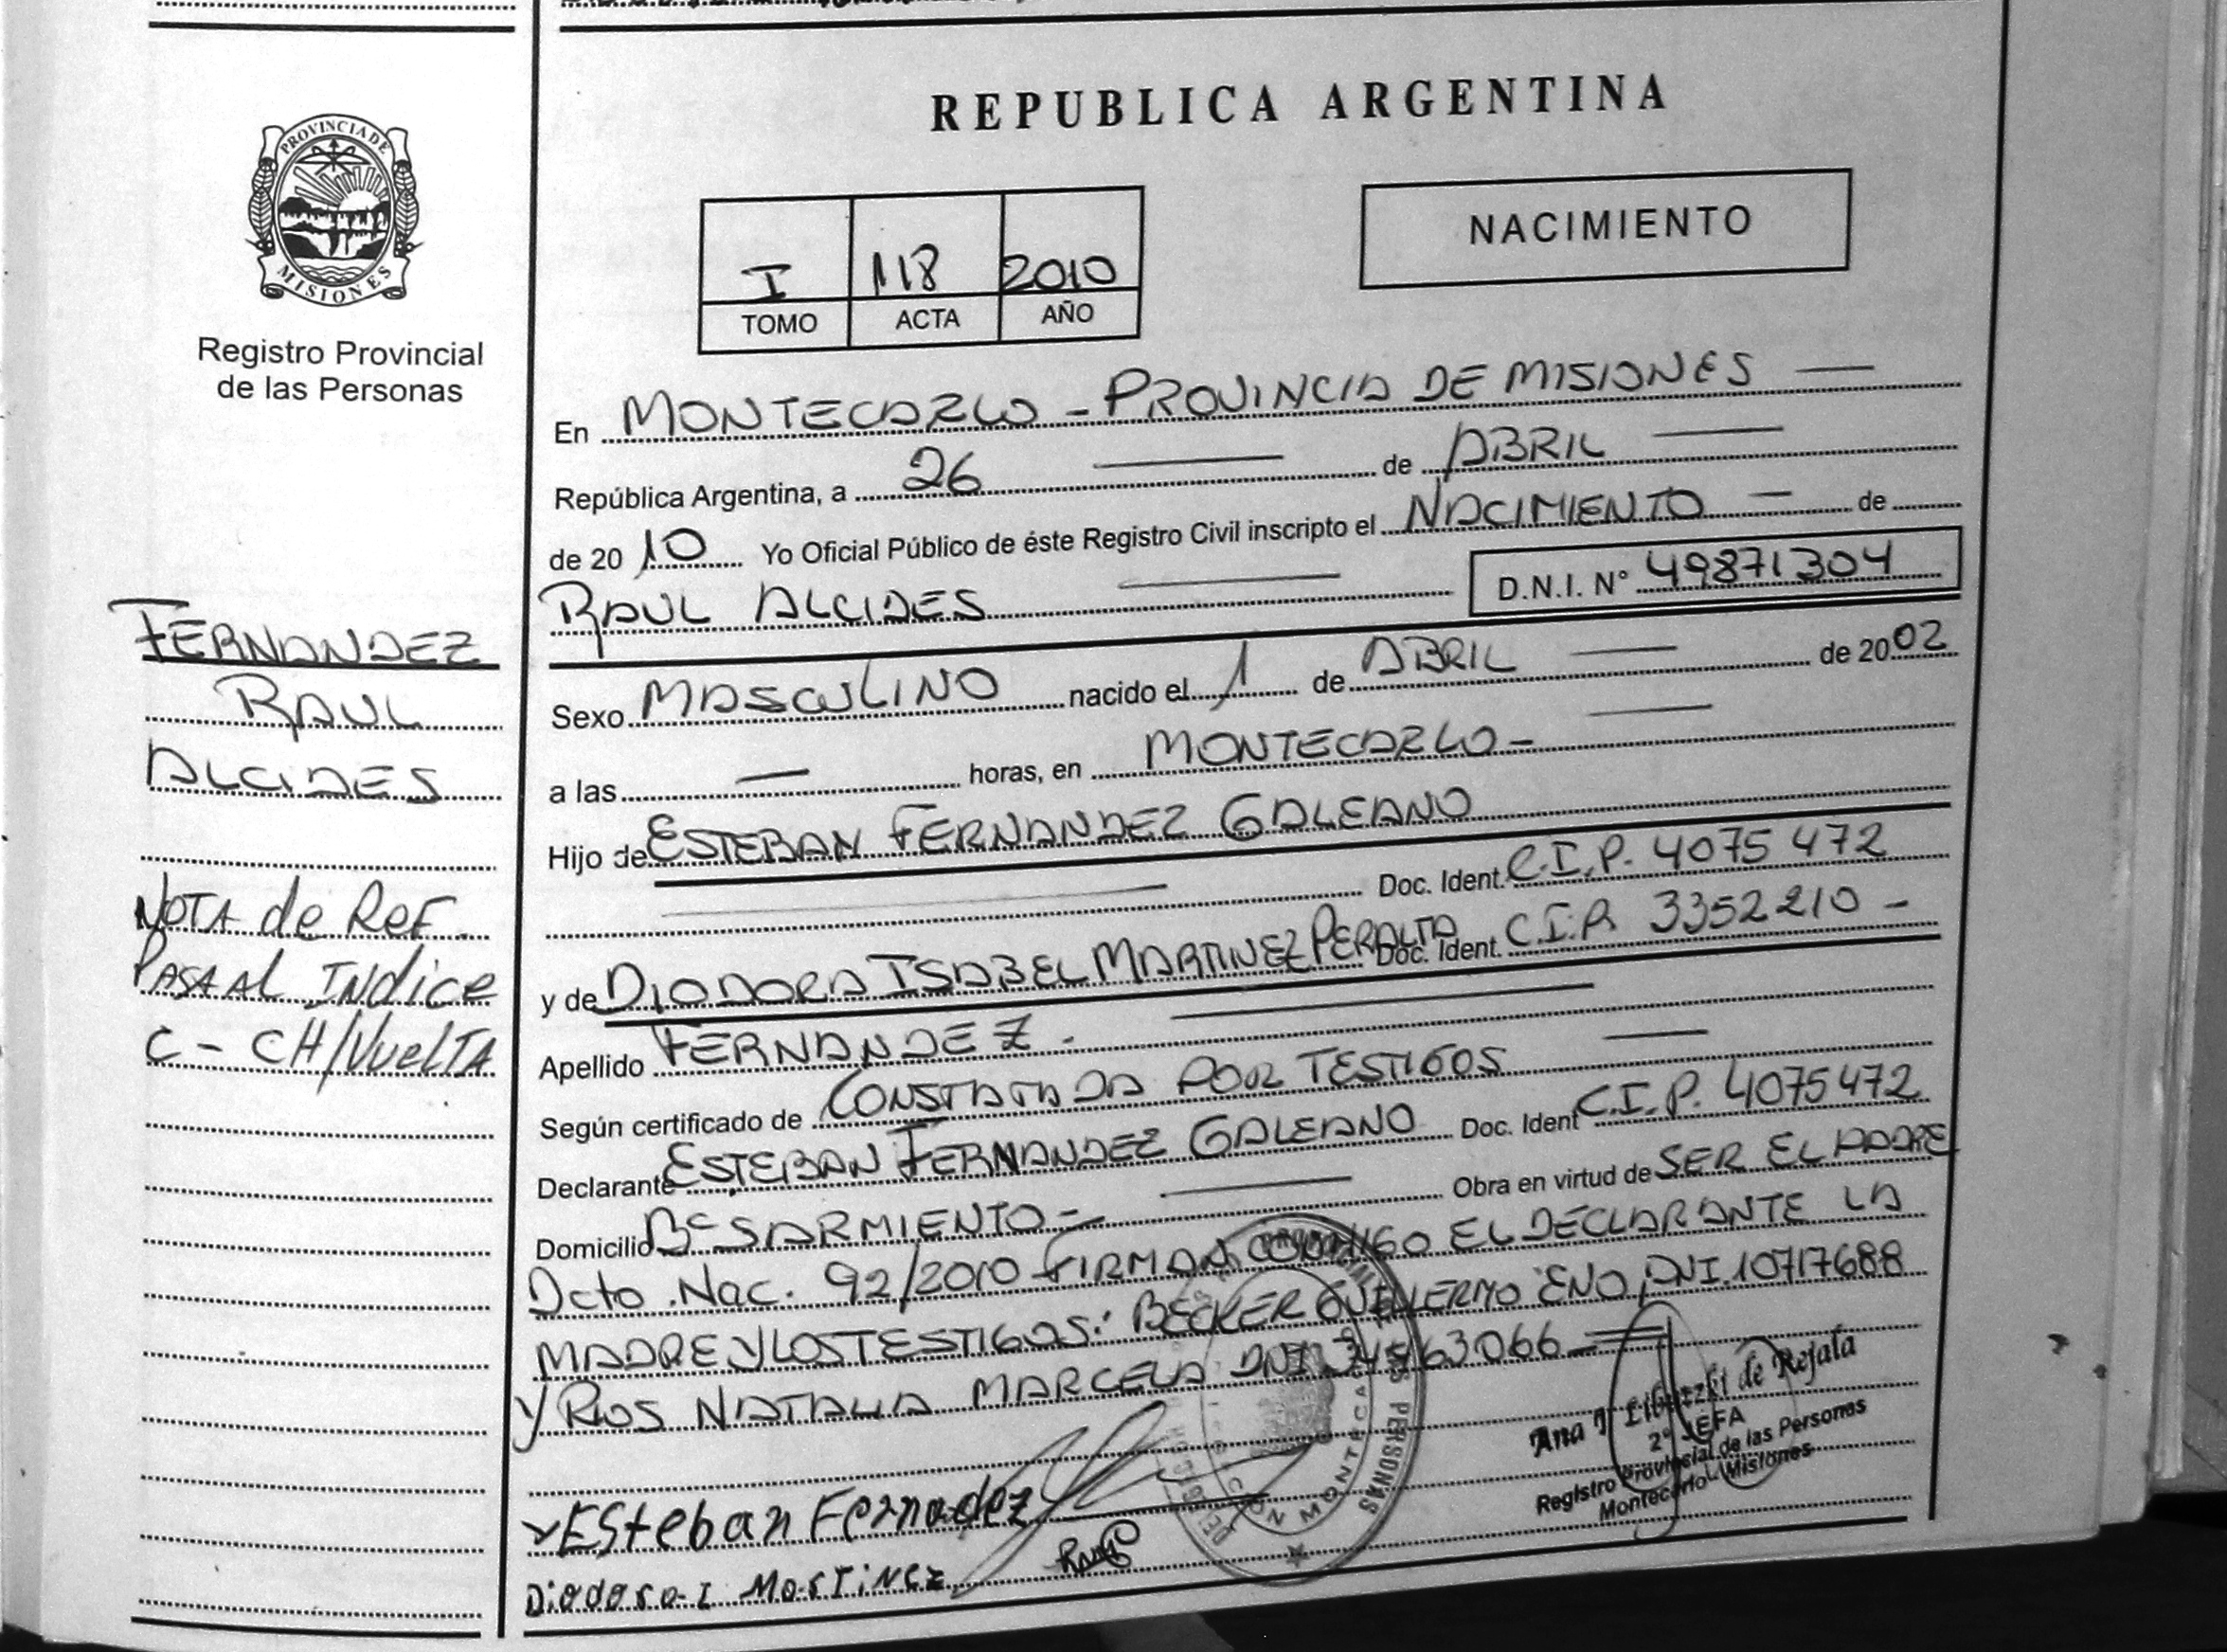 PROVINCIA DE
MISIONES
Registro Provincial
de las Personas
FERNANDEZ
RAUL
ALCIDES
NOTA de REF.
PASA AL INdice
C - CH/VuelTA
REPUBLICA ARGENTINA
NACIMIENTO
I 118 2010
TOMO ACTA AÑO
En MONTECARLO - PROVINCIA DE MISIONES
República Argentina, a 26 de ABRIL
de 20 10 Yo Oficial Público de éste Registro Civil inscripto el NACIMIENTO de
RAUL ALCIDES D.N.I. N° 49871304
Sexo MASCULINO nacido el 1 de ABRIL de 2002
a las — horas, en MONTECARLO -
Hijo de ESTEBAN FERNANDEZ GALEANO
Doc. Ident. C.I.P. 4075 472
y de DIODORA ISABEL MARTINEZ PERALTA Doc. Ident. C.I.P. 3352210 -
Apellido FERNANDEZ -
Según certificado de CONSTATADA POR TESTIGOS
Declarante ESTEBAN FERNANDEZ GALEANO Doc. Ident C.I.P. 4075472
Domicilio Bº SARMIENTO - Obra en virtud de SER EL PADRE
Dcto .Nac. 92/2010 FIRMAN CONMIGO EL DECLARANTE LA
MADRE Y LOS TESTIGOS: BECKER GUILLERMO ENO, DNI.10717688
Y RIOS NATALIA MARCELA DNI
Esteban Fernadez
Diodora I Martinez
PERSONAS
MONTECA
Ana de Rejala
2° JEFA
Registro Provincial de las Personas
Montecarlo - Misiones